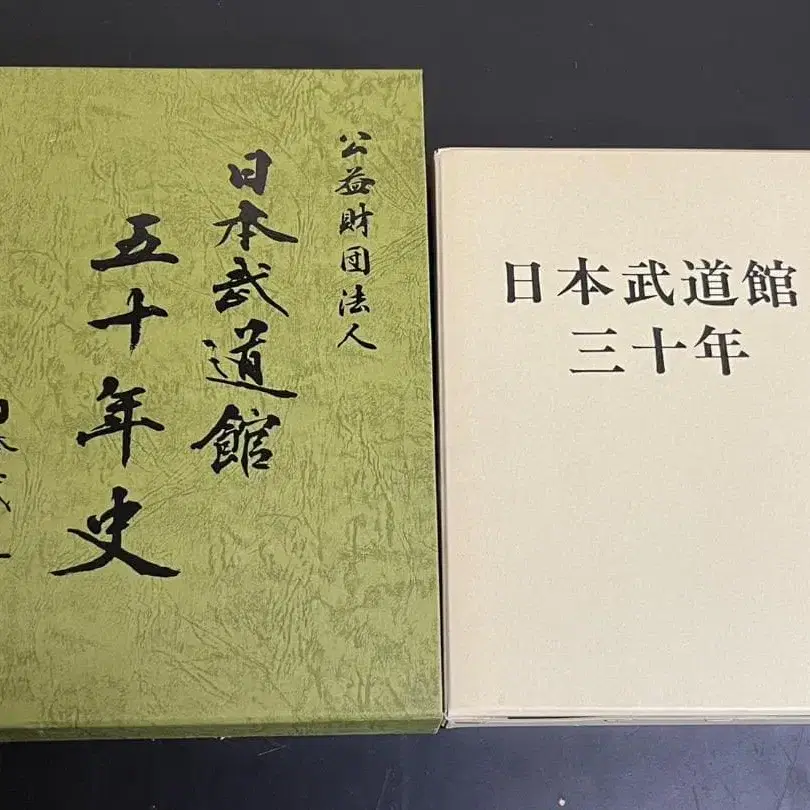 公益財団法人
日本武道館
五十年史
日本武道館
三十年